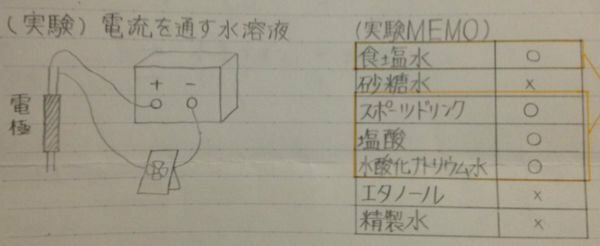 (実験) 電流を通す水溶液
+ −
電極
(実験MEMO)
食塩水 ○
砂糖水 ×
スポーツドリンク ○
塩酸 ○
水酸化ナトリウム水 ○
エタノール ×
精製水 ×